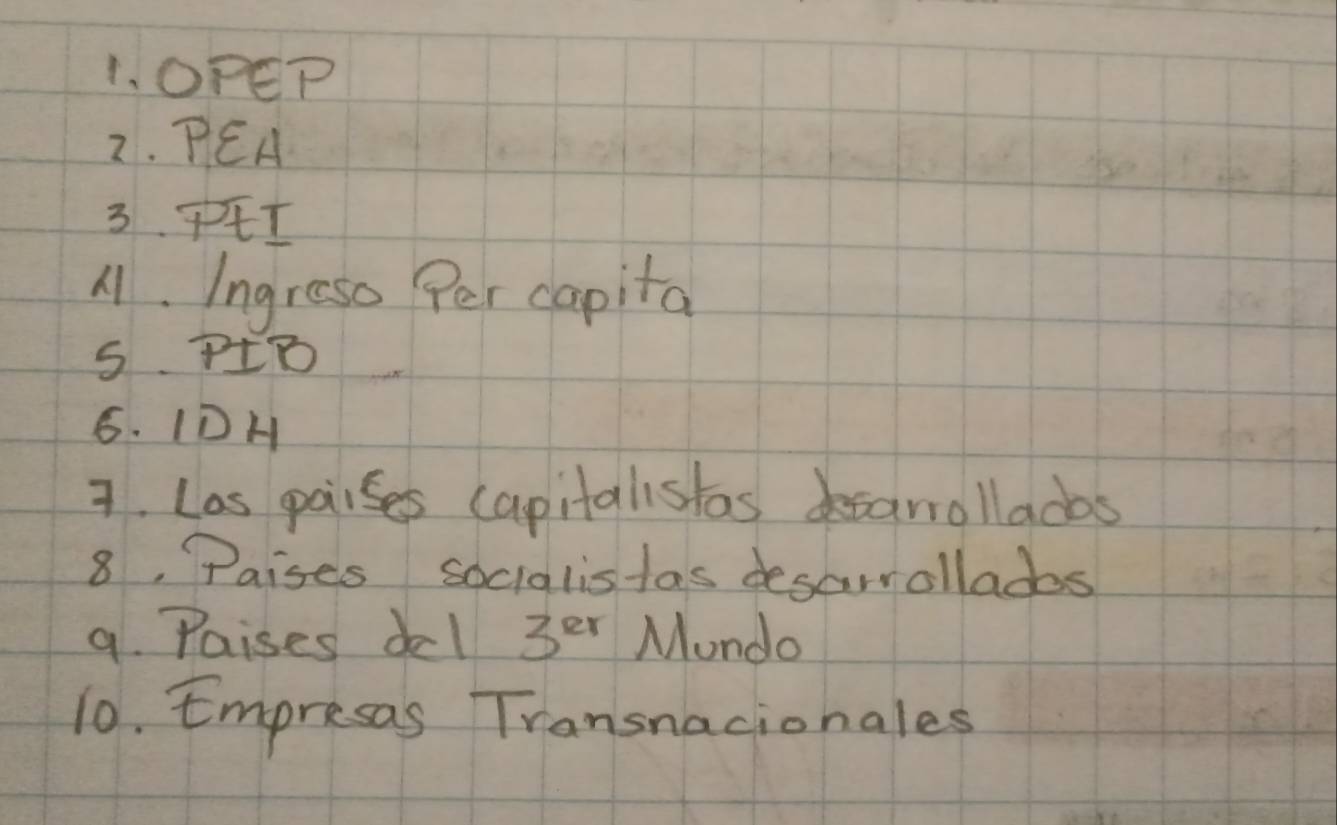 1. OPEP
2. PEA
3. PEI
4. Ingreso Per capita
5. PIB
6. IDH
7. Los paises capitalistas desarrollados
8. Paises socialistas desarrollados
9. Paises del 3er Mundo
10. Empresas Transnacionales